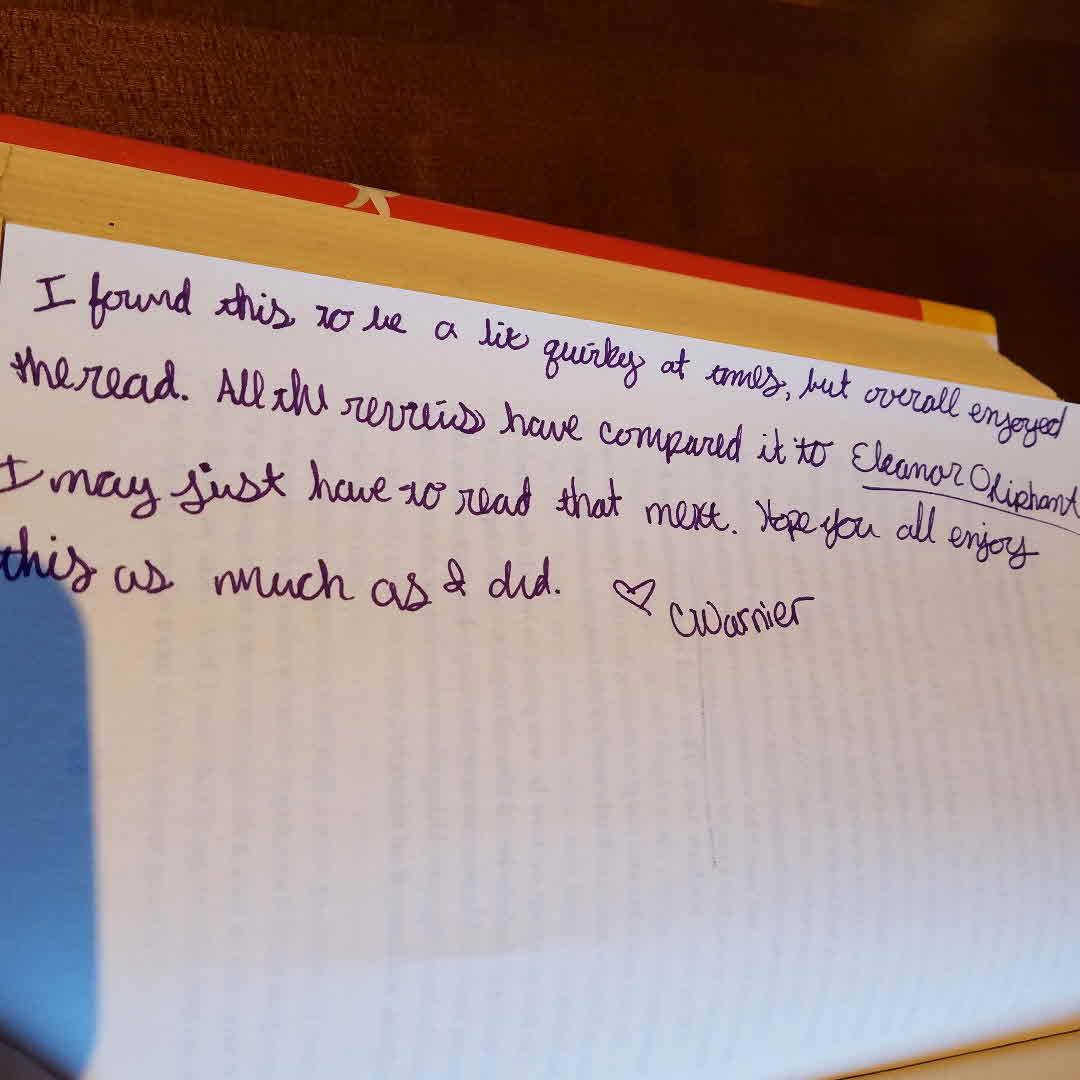 I found this to be a bit quirky at times, but overall enjoyed
the read. All the reviews have compared it to Eleanor Oliphant
I may just have to read that next. Hope you all enjoy
this as much as I did. ♡ CWarnier